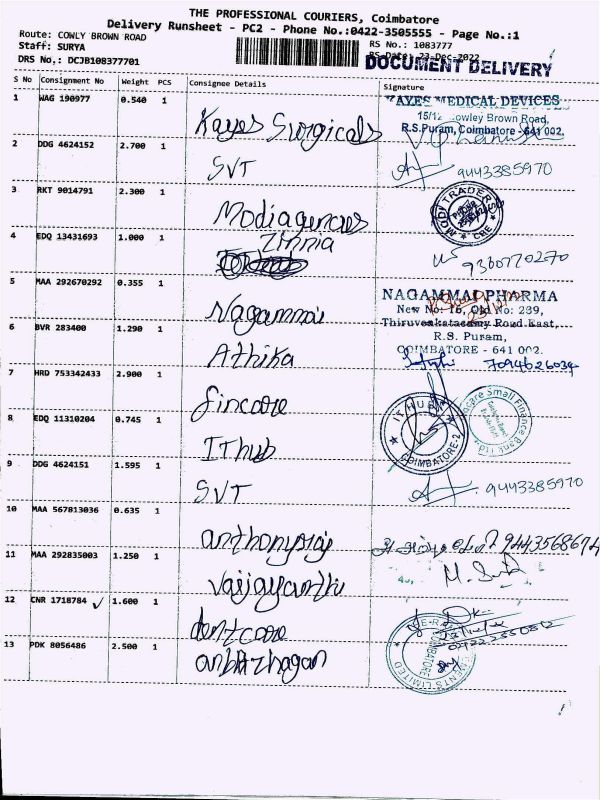 THE PROFESSIONAL COURIERS, Coimbatore
Delivery Runsheet - PC2 - Phone No.:0422-3505555 - Page No.:1
Route: COWLY BROWN ROAD
RS No.: 1083777
Staff: SURYA
23-Dec-2022
DRS No,: DCJB108377701
DOCUMENT DELIVERY
S No Consignment No Weight PCS Consignee Details Signature
1 WAG 190977 0.540 1 Kayes Surgicals
KAYES MEDICAL DEVICES
15/12 Cowley Brown Road,
R.S.Puram, Coimbatore - 641 002.
2 DDG 4624152 2.700 1 SVT 9443385970
3 RKT 9014791 2.300 1 Modiagencies
MODI TRADERS
CBE
4 EDQ 13431693 1.000 1 Zinnia 9360770270
5 MAA 292670292 0.355 1 Nagammai
NAGAMMAI PHARMA
New No: 16, Old No: 239,
Thiruvenkatasamy Road East,
R.S. Puram,
COIMBATORE - 641 002.
6 BVR 283400 1.290 1 Athika 7094626034
7 HRD 753342433 2.900 1 fincare
Small Finance Bank Ltd.
8 EDQ 11310204 0.745 1 IThub
IT HUB
COIMBATORE-2
9 DDG 4624151 1.595 1 SVT 9443385970
10 MAA 567813036 0.635 1 anthonyraj 9443568674
11 MAA 292835003 1.250 1 Vaijayanthi
12 CNR 1718784 ✓ 1.600 1 dentcare
13 PDK 8056486 2.500 1 anbazhagan
COIMBATORE